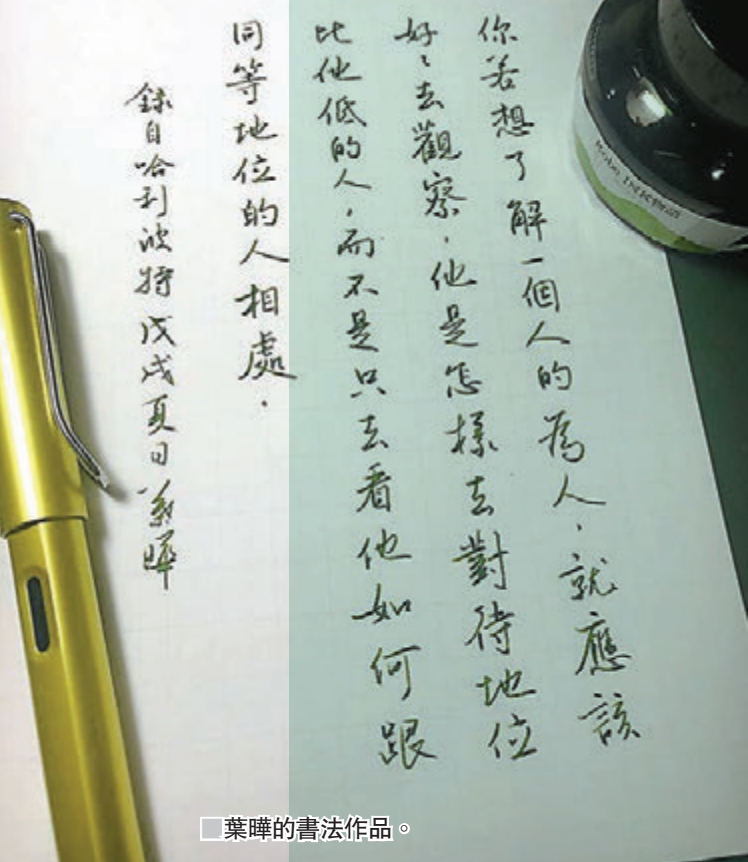 你若想了解一個人的為人，就應該
好々去觀察，他是怎樣去對待地位
比他低的人，而不是只去看他如何跟
同等地位的人相處．
錄自哈利波特戊戌夏日葉曄
葉曄的書法作品。